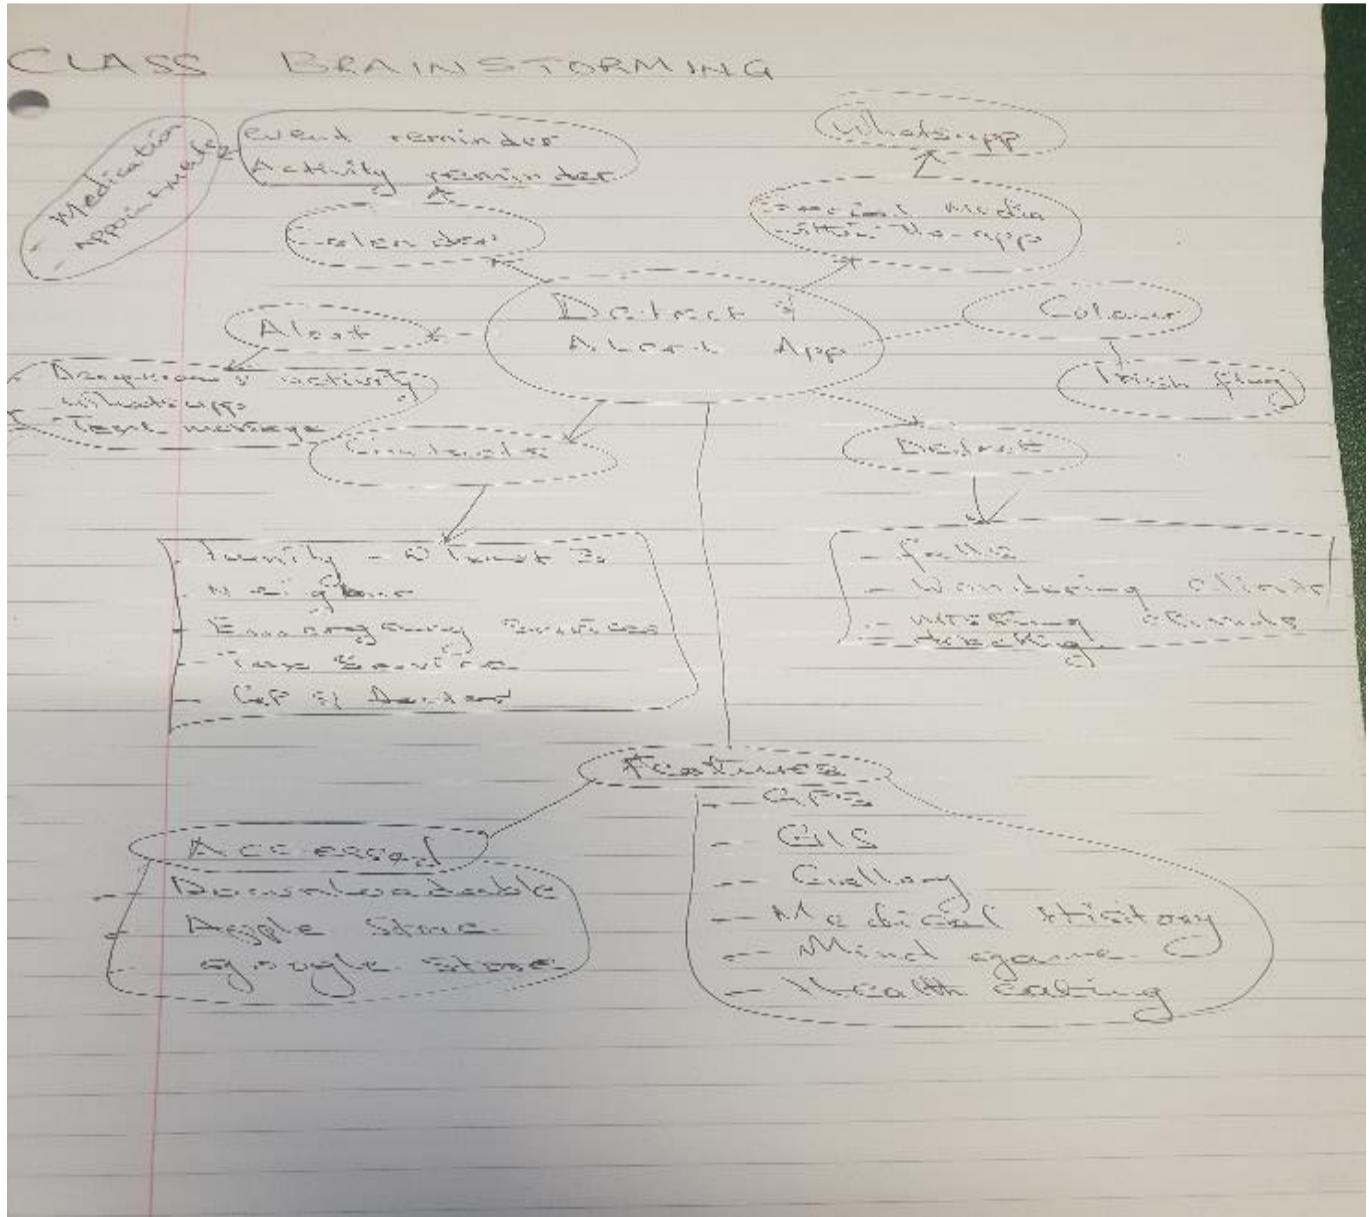 CLASS BRAINSTORMING
- Medication
- Appointments
event reminder
Activity reminder
Whatsapp
Calender
Social media
within the app
Detect &
Alert App
Colour
Alert
Irish flag
- Dangerous activity
- whatsapp
- Text message
Contacts
Detect
- family -
- Neigbour
- Emergency Services
- Taxi Service
- GP &
- falls
- Wandering clients
- missing clients
- tracking
Features
- GPS
- GIS
- Gallery
- Medical History
- Mind game
- Health eating
Accessed
- Downloadable
- Apple Store
- google store